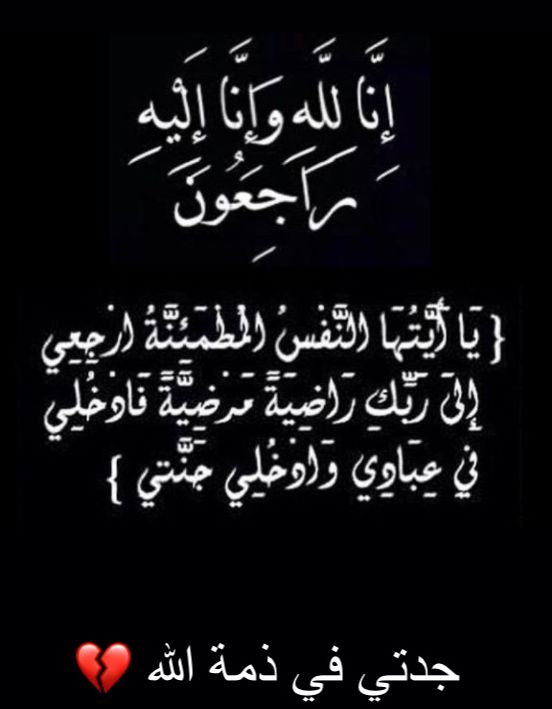 إِنَّا لِلَّهِ وَإِنَّا إِلَيْهِ
رَاجِعُونَ
{ يَا أَيَّتُهَا النَّفْسُ الْمُطْمَئِنَّةُ ارْجِعِي
إِلَى رَبِّكِ رَاضِيَةً مَرْضِيَّةً فَادْخُلِي
فِي عِبَادِي وَادْخُلِي جَنَّتِي }
جدتي في ذمة الله 💔